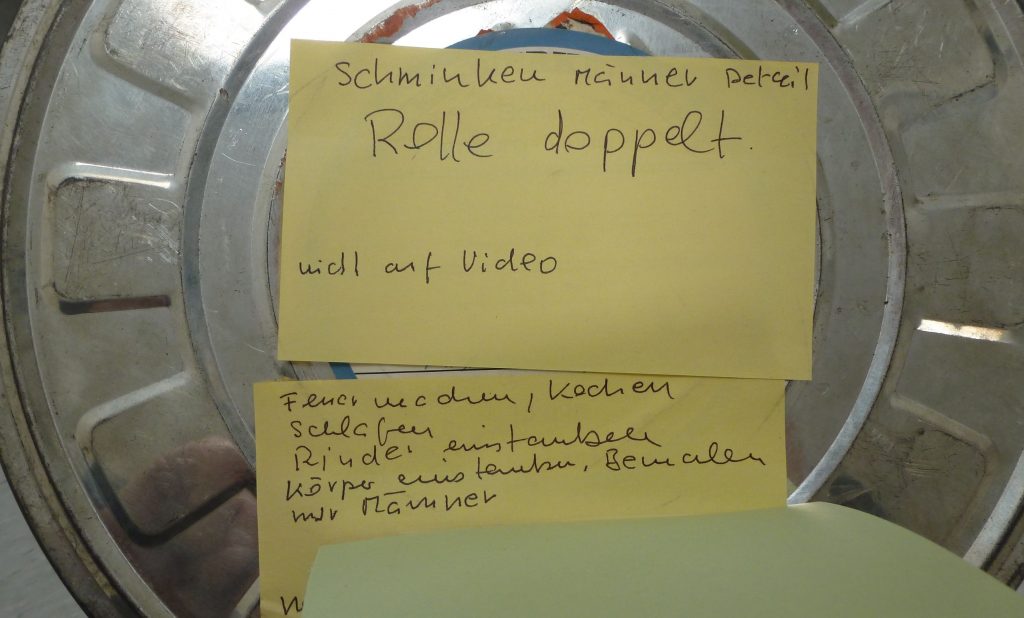 Schminken Männer Detail
Rolle doppelt.
nicht auf Video
Feuer machen, Kochen
Schlafen
Rinder einstauben
Körper einstauben, Bemalen
nur Männer